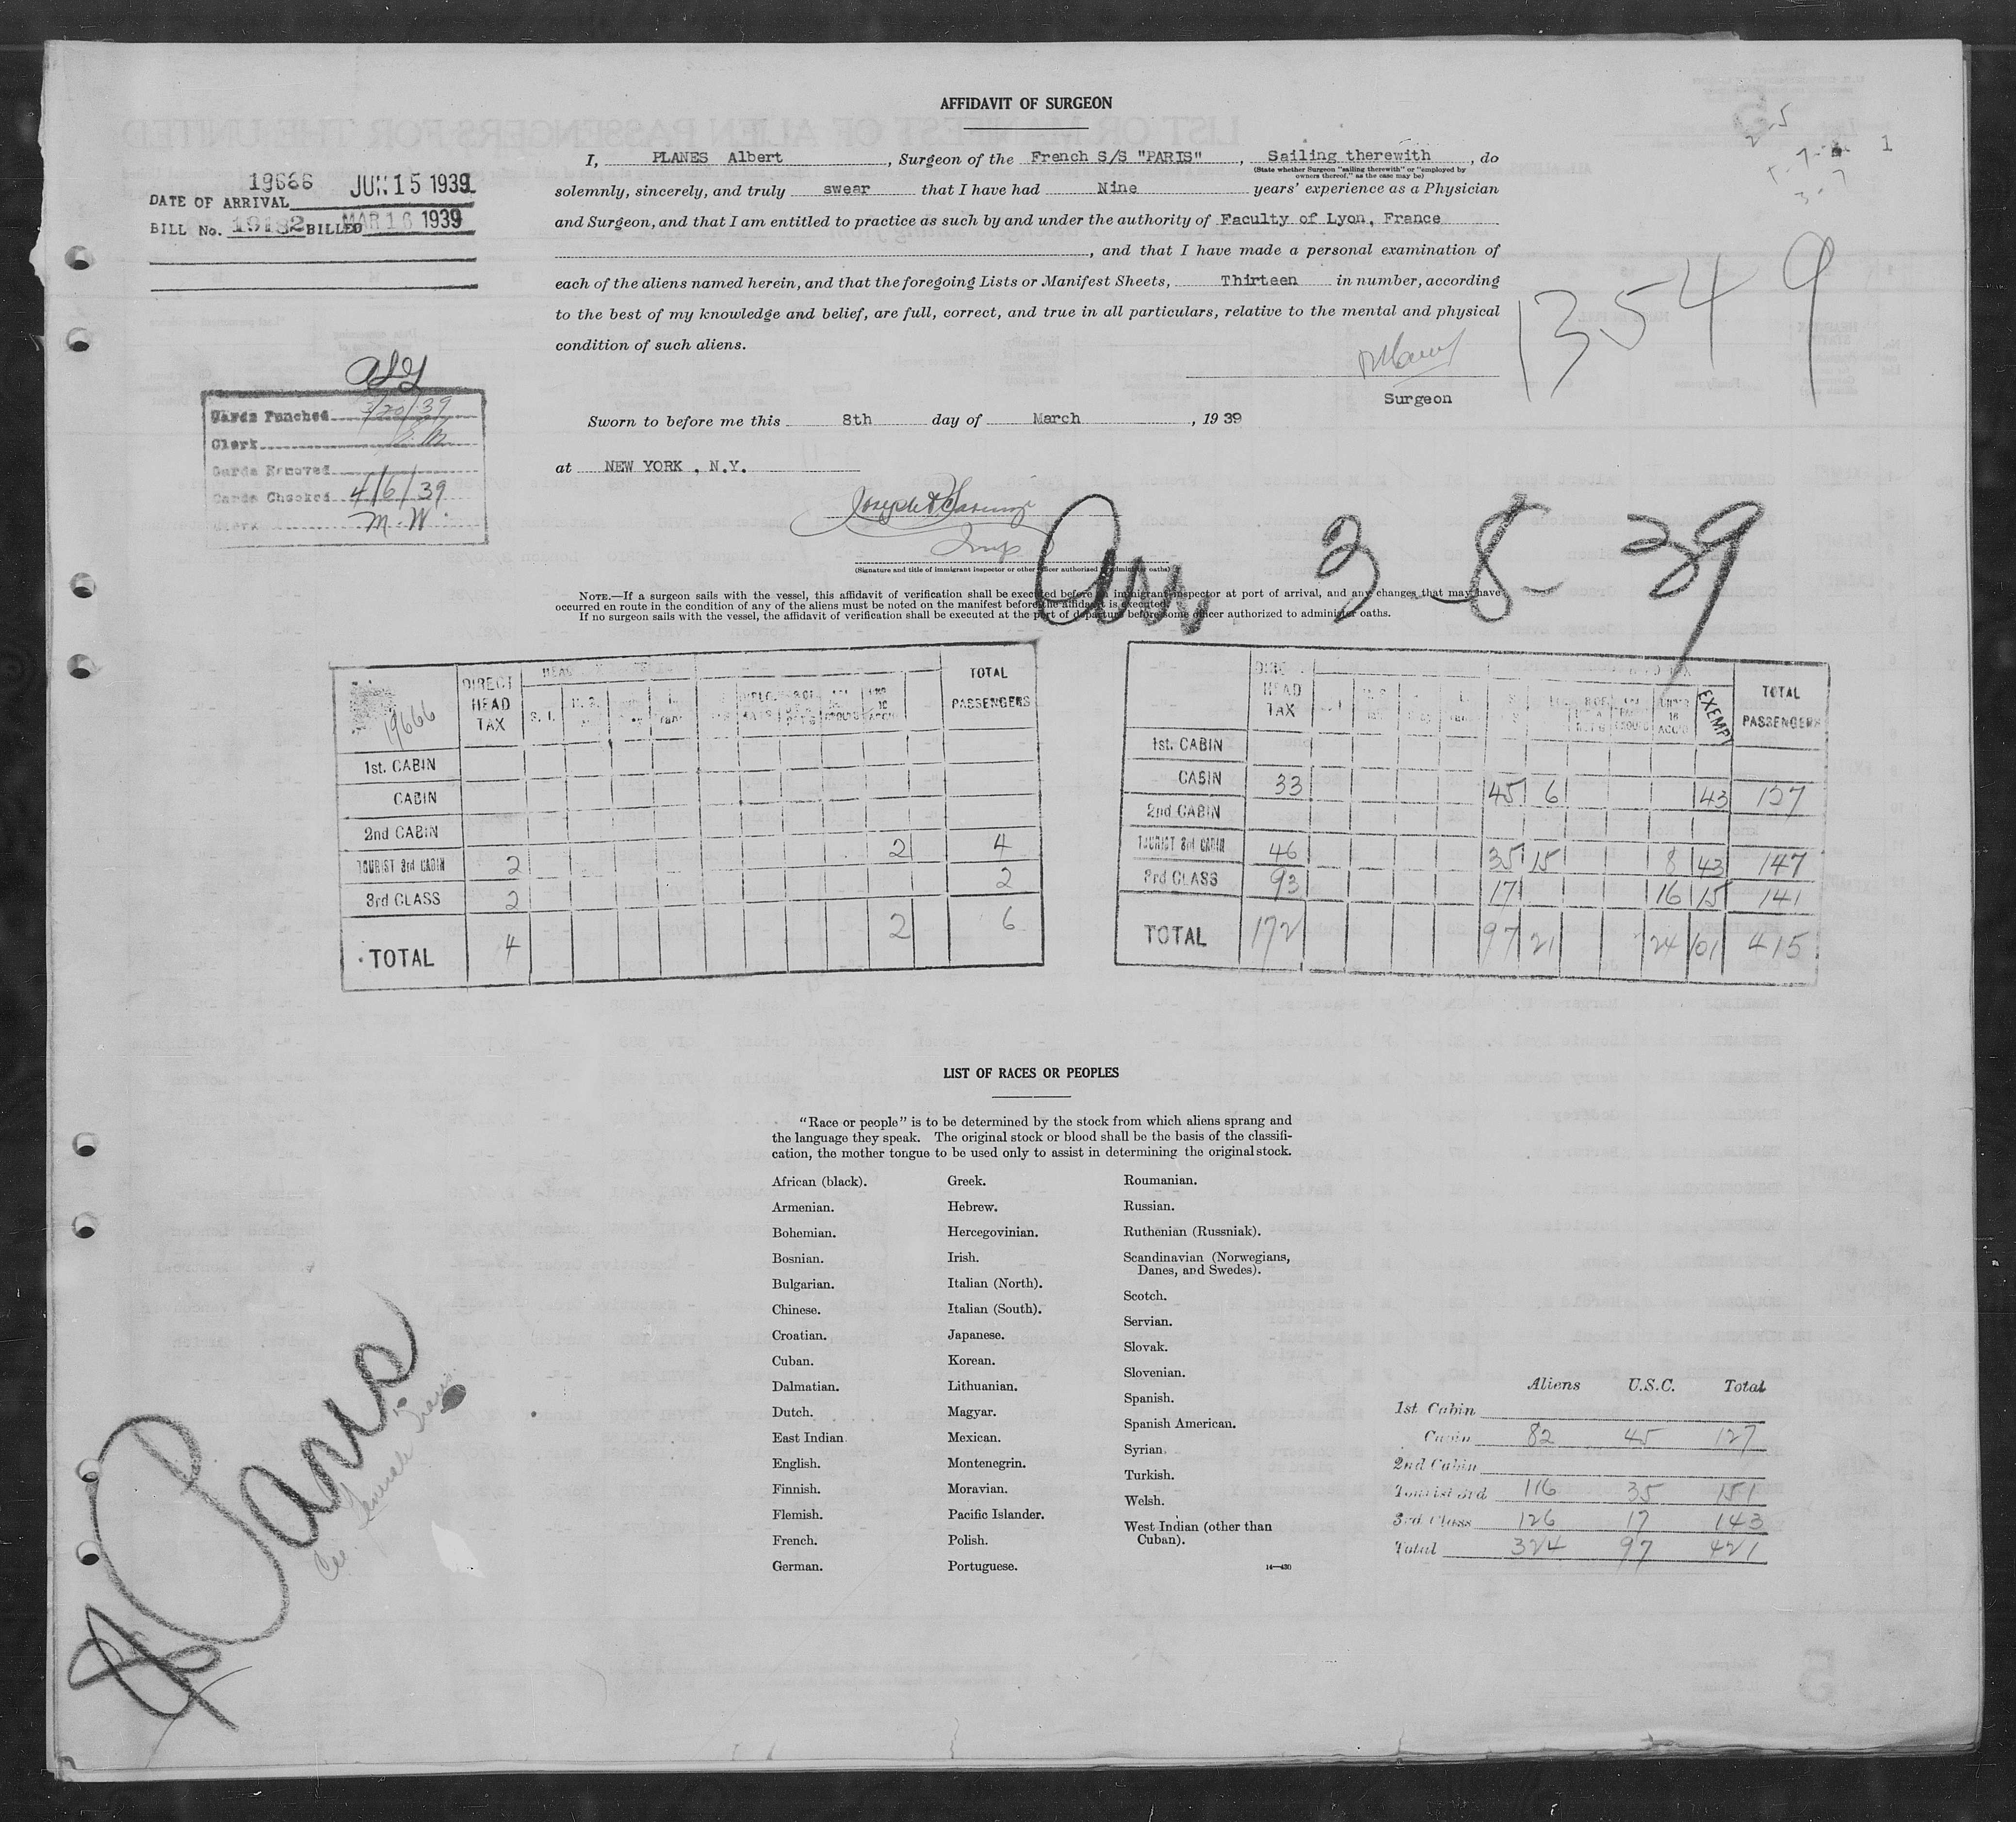 AFFIDAVIT OF SURGEON
I, PLANES Albert, Surgeon of the French S/S "PARIS", Sailing therewith, do
(State whether Surgeon "sailing therewith" or "employed by owners thereof," as the case may be)
solemnly, sincerely, and truly swear that I have had Nine years' experience as a Physician
and Surgeon, and that I am entitled to practice as such by and under the authority of Faculty of Lyon, France
, and that I have made a personal examination of
each of the aliens named herein, and that the foregoing Lists or Manifest Sheets, Thirteen in number, according
to the best of my knowledge and belief, are full, correct, and true in all particulars, relative to the mental and physical
condition of such aliens.
Surgeon
Sworn to before me this 8th day of March, 1939
at NEW YORK, N.Y.
(Signature and title of immigrant inspector or other officer authorized to administer oaths)
NOTE.—If a surgeon sails with the vessel, this affidavit of verification shall be executed before an immigrant inspector at port of arrival, and any changes that may have
occurred en route in the condition of any of the aliens must be noted on the manifest before the affidavit is executed.
If no surgeon sails with the vessel, the affidavit of verification shall be executed at the port of departure before some officer authorized to administer oaths.
19666 JUN 15 1939
DATE OF ARRIVAL
BILL No. 19182 BILLED MAR 16 1939
Cards Punched 3/20/39
Clerk
Cards Removed
Cards Checked 4/6/39
Clerk M.W.
1
13549
Arr 3-8-39
19666 DIRECT HEAD TAX TOTAL PASSENGERS
1st. CABIN
CABIN
2nd CABIN
TOURIST 3rd CABIN 2 2 4
3rd CLASS 2 2
TOTAL 4 2 6
DIRECT HEAD TAX EXEMPT TOTAL PASSENGERS
1st. CABIN
CABIN 33 45 6 43 127
2nd CABIN
TOURIST 3rd CABIN 46 35 15 8 43 147
3rd CLASS 93 17 16 15 141
TOTAL 172 97 21 24 101 415
LIST OF RACES OR PEOPLES
"Race or people" is to be determined by the stock from which aliens sprang and
the language they speak. The original stock or blood shall be the basis of the classifi-
cation, the mother tongue to be used only to assist in determining the original stock.
African (black).
Armenian.
Bohemian.
Bosnian.
Bulgarian.
Chinese.
Croatian.
Cuban.
Dalmatian.
Dutch.
East Indian.
English.
Finnish.
Flemish.
French.
German.
Greek.
Hebrew.
Hercegovinian.
Irish.
Italian (North).
Italian (South).
Japanese.
Korean.
Lithuanian.
Magyar.
Mexican.
Montenegrin.
Moravian.
Pacific Islander.
Polish.
Portuguese.
Roumanian.
Russian.
Ruthenian (Russniak).
Scandinavian (Norwegians,
Danes, and Swedes).
Scotch.
Servian.
Slovak.
Slovenian.
Spanish.
Spanish American.
Syrian.
Turkish.
Welsh.
West Indian (other than
Cuban).
14—430
Aliens U.S.C. Total
1st Cabin
Cabin 82 45 127
2nd Cabin
Tourist 3rd 116 35 151
3rd Class 126 17 143
Total 324 97 421
Paris